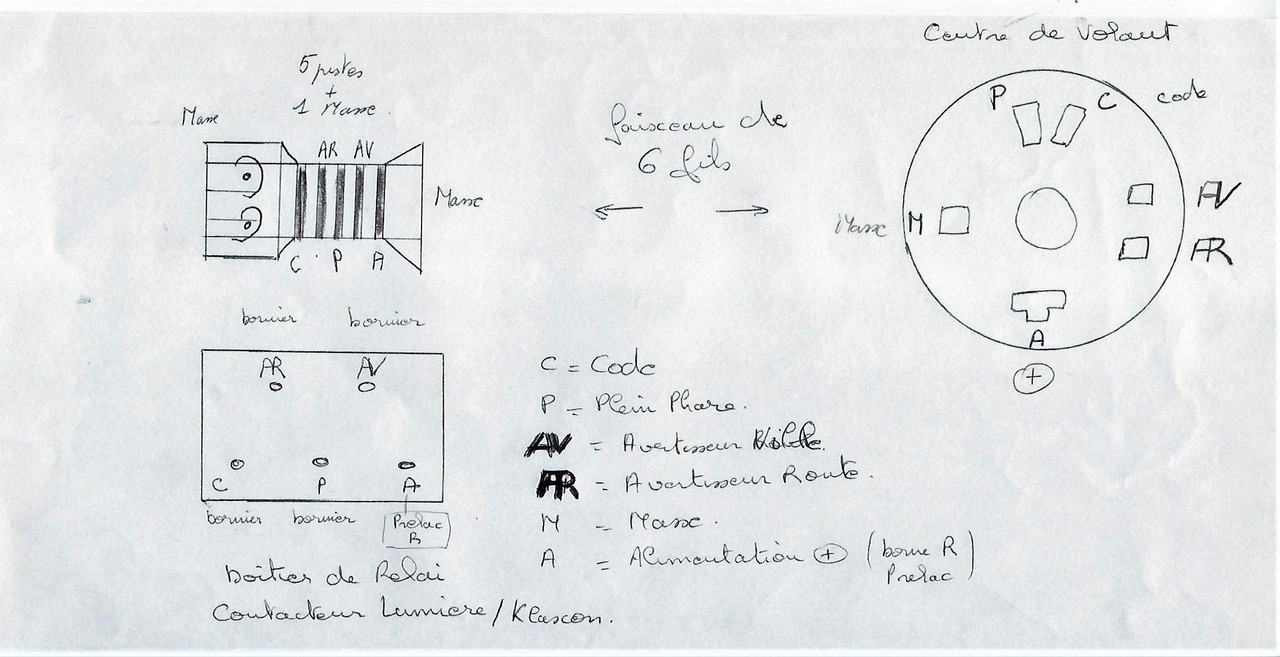 Centre de Volant
5 pistes
+
1 Masse
Masse
AR AV
Masse
C P A
faisceau de
6 fils
P C code
AV
Masse M
AR
A
+
bornier bornier
AR AV
C P A
bornier bornier Prelac
R
Boîtier de Relai
Contacteur Lumiere/Klascon.
C = Code
P = Plein Phare.
AV = Avertisseur Ville.
AR = Avertisseur Route.
M = Masse.
A = Alimentation + (borne R
Prelac)